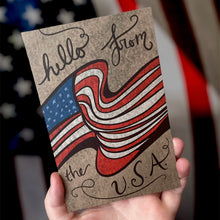 hello from
the USA